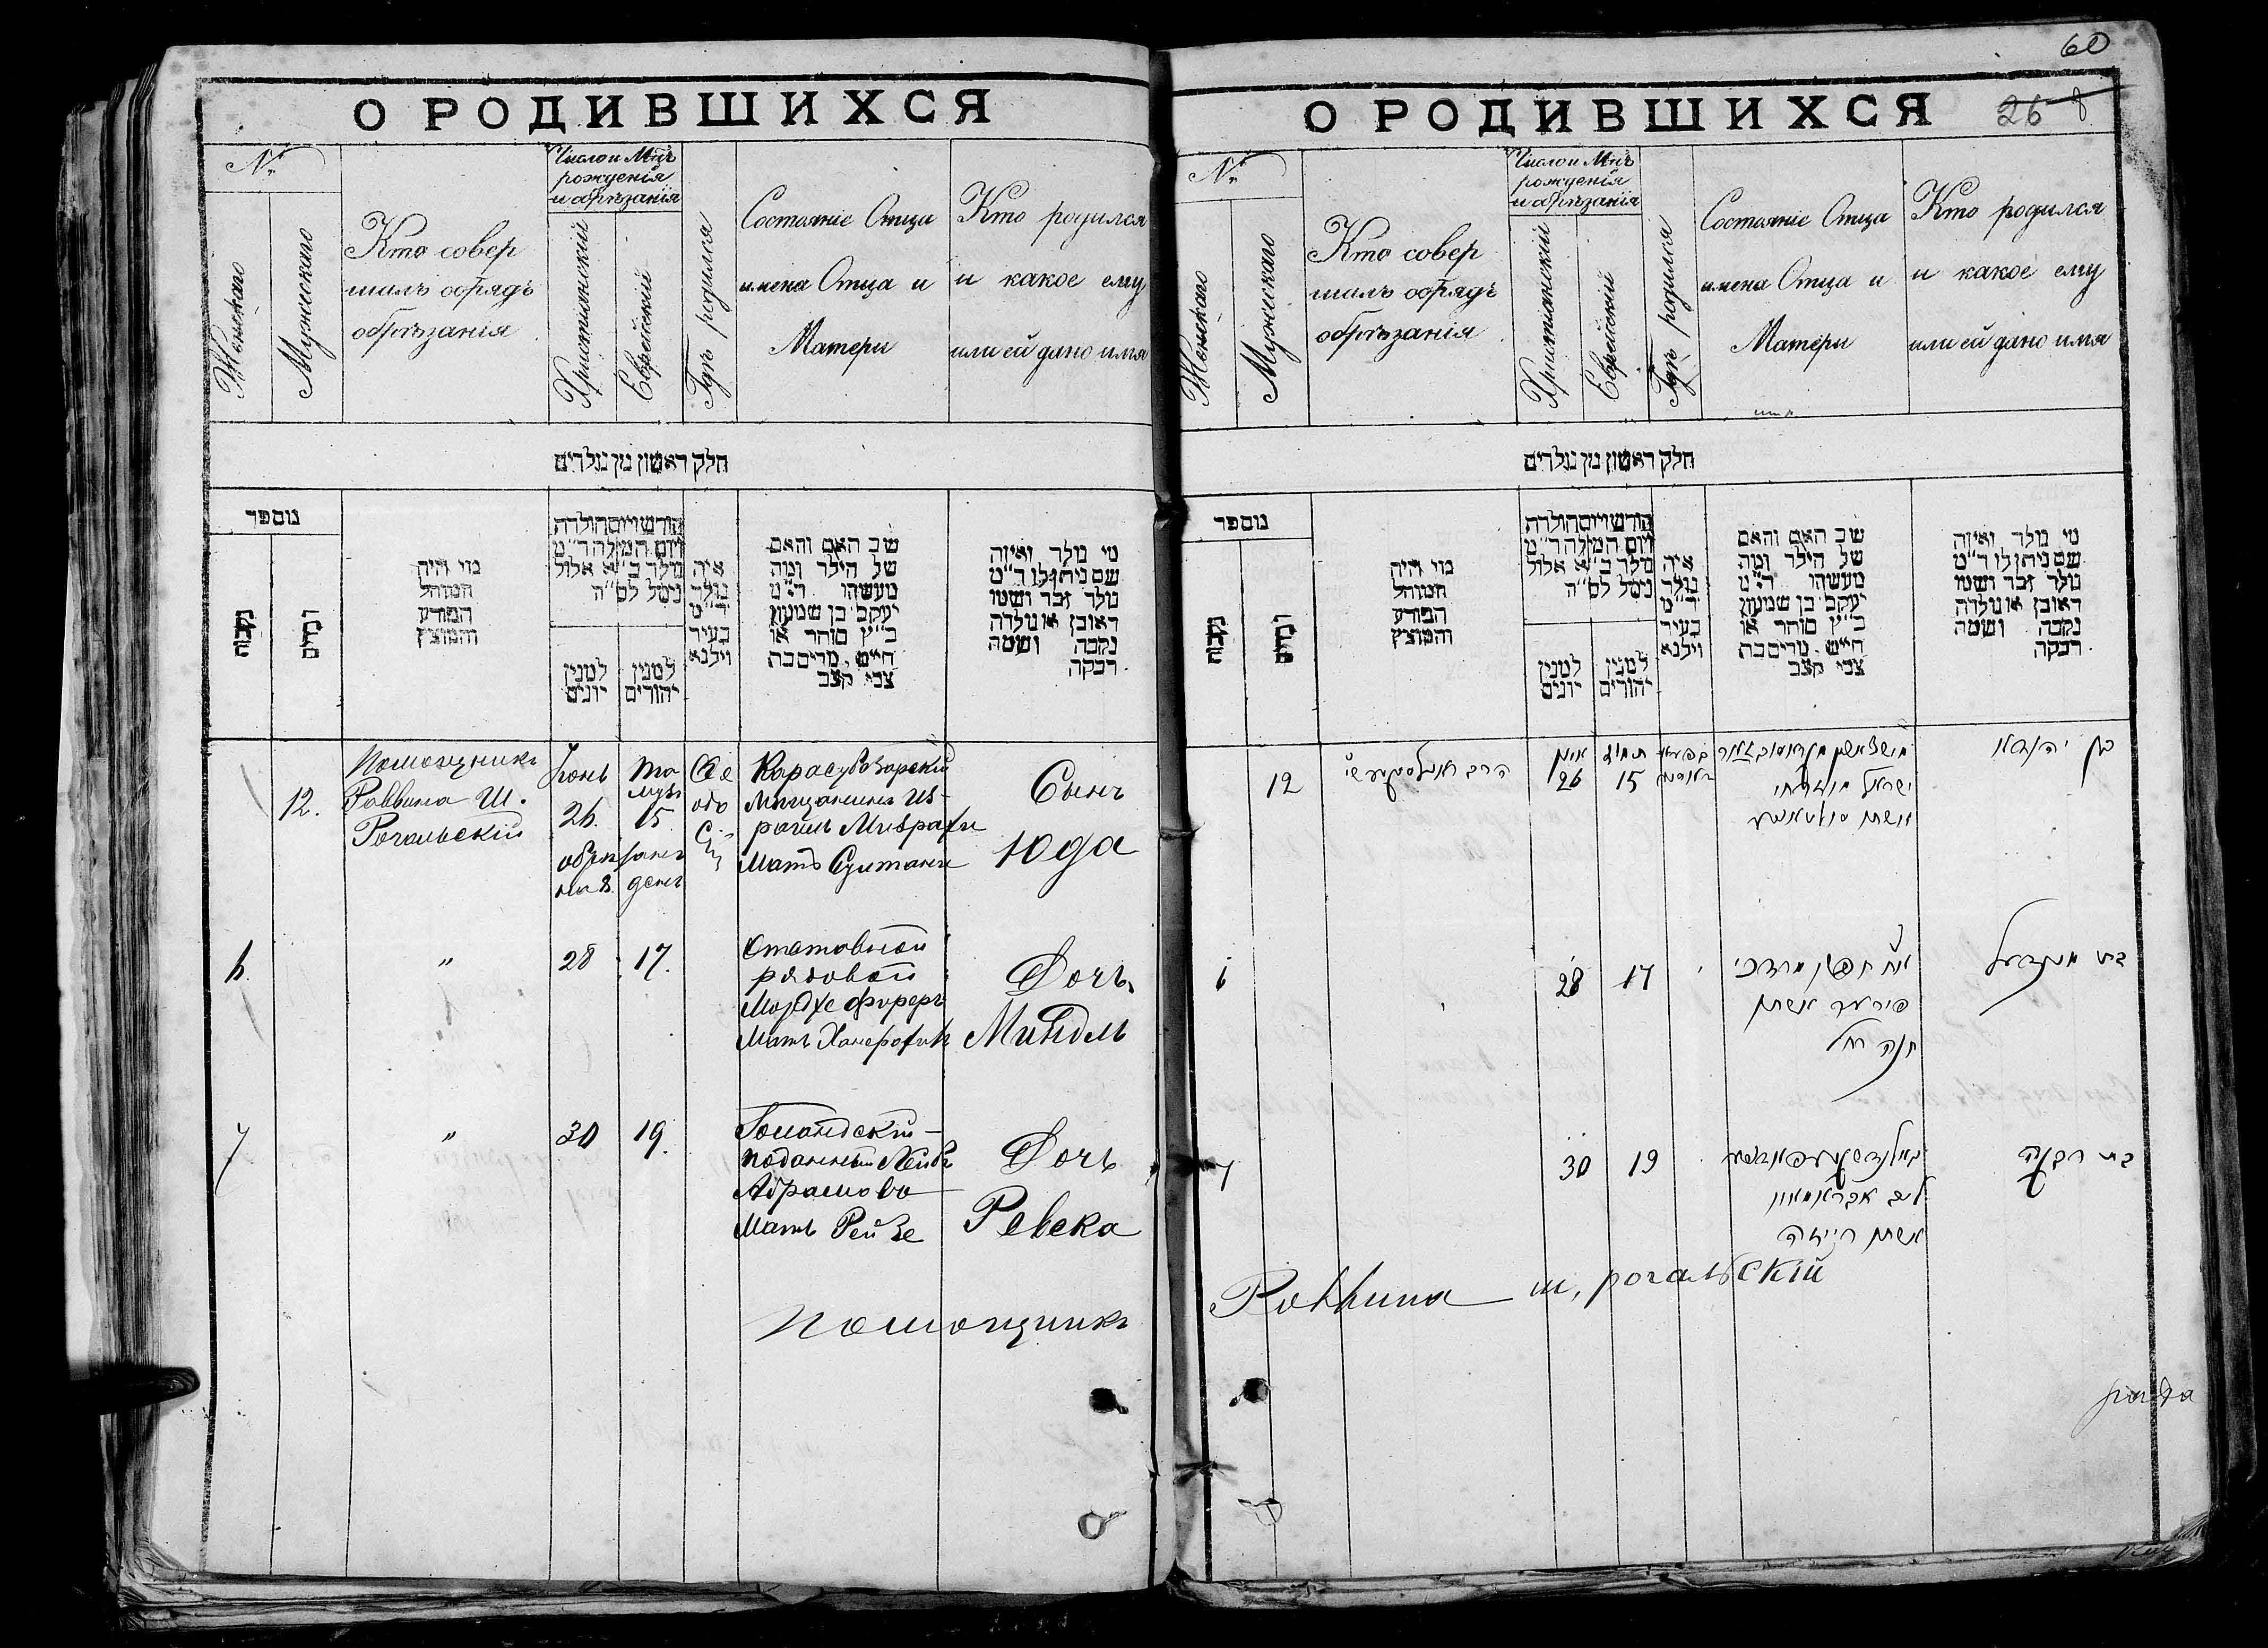 О РОДИВШИХСЯ
№
Женскаго
Мужескаго
Кто совер
шалъ обрядъ
обрѣзанія
Число и Мѣ-ъ
рожденія
и обрѣзанія
Христіанскій
Еврейскій
Гдѣ родился
Состояніе Отца
имена Отца и
Матери
Кто родился
и какое ему
или ей дано имя
חלק ראשון מן נולדים
מספר
נקבות
זכרים
מי היה
המוהל
הפורע
והמוצץ
חודש ויום הולדה
ויום המילה ד״מ
נולד ב״א אלול
נימל לס״ה
למנין
יונים
למנין
יהודים
איה
נולד
ד״מ
בעיר
וילנא
שב האם והאם
של הילד ומה
מעשהו ד״מ
יעקב בן שמעון
כ״ץ סוחר או
חייט. מרים בת
צבי קצב
מי נולד ואיזה
שם ניתן לו ד״מ
נולד זכר ושמו
ראובן או נולדה
נקבה ושמה
רבקה
12.
Помощникъ
Раввина Ш.
Рогальскій
Іюнь
26.
Та
музъ
15
обрѣзанъ
на 8. день
Ѳе
одо
Карасубазарскій
Мѣщанинъ Из-
раиль Мизрахи
Мать Султана
Сынъ
Юда
6.
"
28
17.
рядовой
Мать
Дочь
Миндль
7
"
30
19.
Голандскій
подданный Лейбъ
Абрамовъ
Мать Рейзе
Дочь
Ревека
Помощникъ
60
О РОДИВШИХСЯ
26
№
Женскаго
Мужескаго
Кто совер
шалъ обрядъ
обрѣзанія
Число и Мѣ-ъ
рожденія
и обрѣзанія
Христіанскій
Еврейскій
Гдѣ родился
Состояніе Отца
имена Отца и
Матери
Кто родился
и какое ему
или ей дано имя
חלק ראשון מן נולדים
מספר
נקבות
זכרים
מי היה
המוהל
הפורע
והמוצץ
חודש ויום הולדה
ויום המילה ד״מ
נולד ב״א אלול
נימל לס״ה
למנין
יונים
למנין
יהודים
איה
נולד
ד״מ
בעיר
וילנא
שב האם והאם
של הילד ומה
מעשהו ד״מ
יעקב בן שמעון
כ״ץ סוחר או
חייט. מרים בת
צבי קצב
מי נולד ואיזה
שם ניתן לו ד״מ
נולד זכר ושמו
ראובן או נולדה
נקבה ושמה
רבקה
12
26
תמוז
15
ישראל מזרחי
אשתו
בן יהודא
6
28
17
מרדכי
אשתו
חנה רחל
בת מינדעל
7
30
19
ליב אבראמאוו
אשתו רייזה
בת רבקה
Раввина Ш, Рогальскій